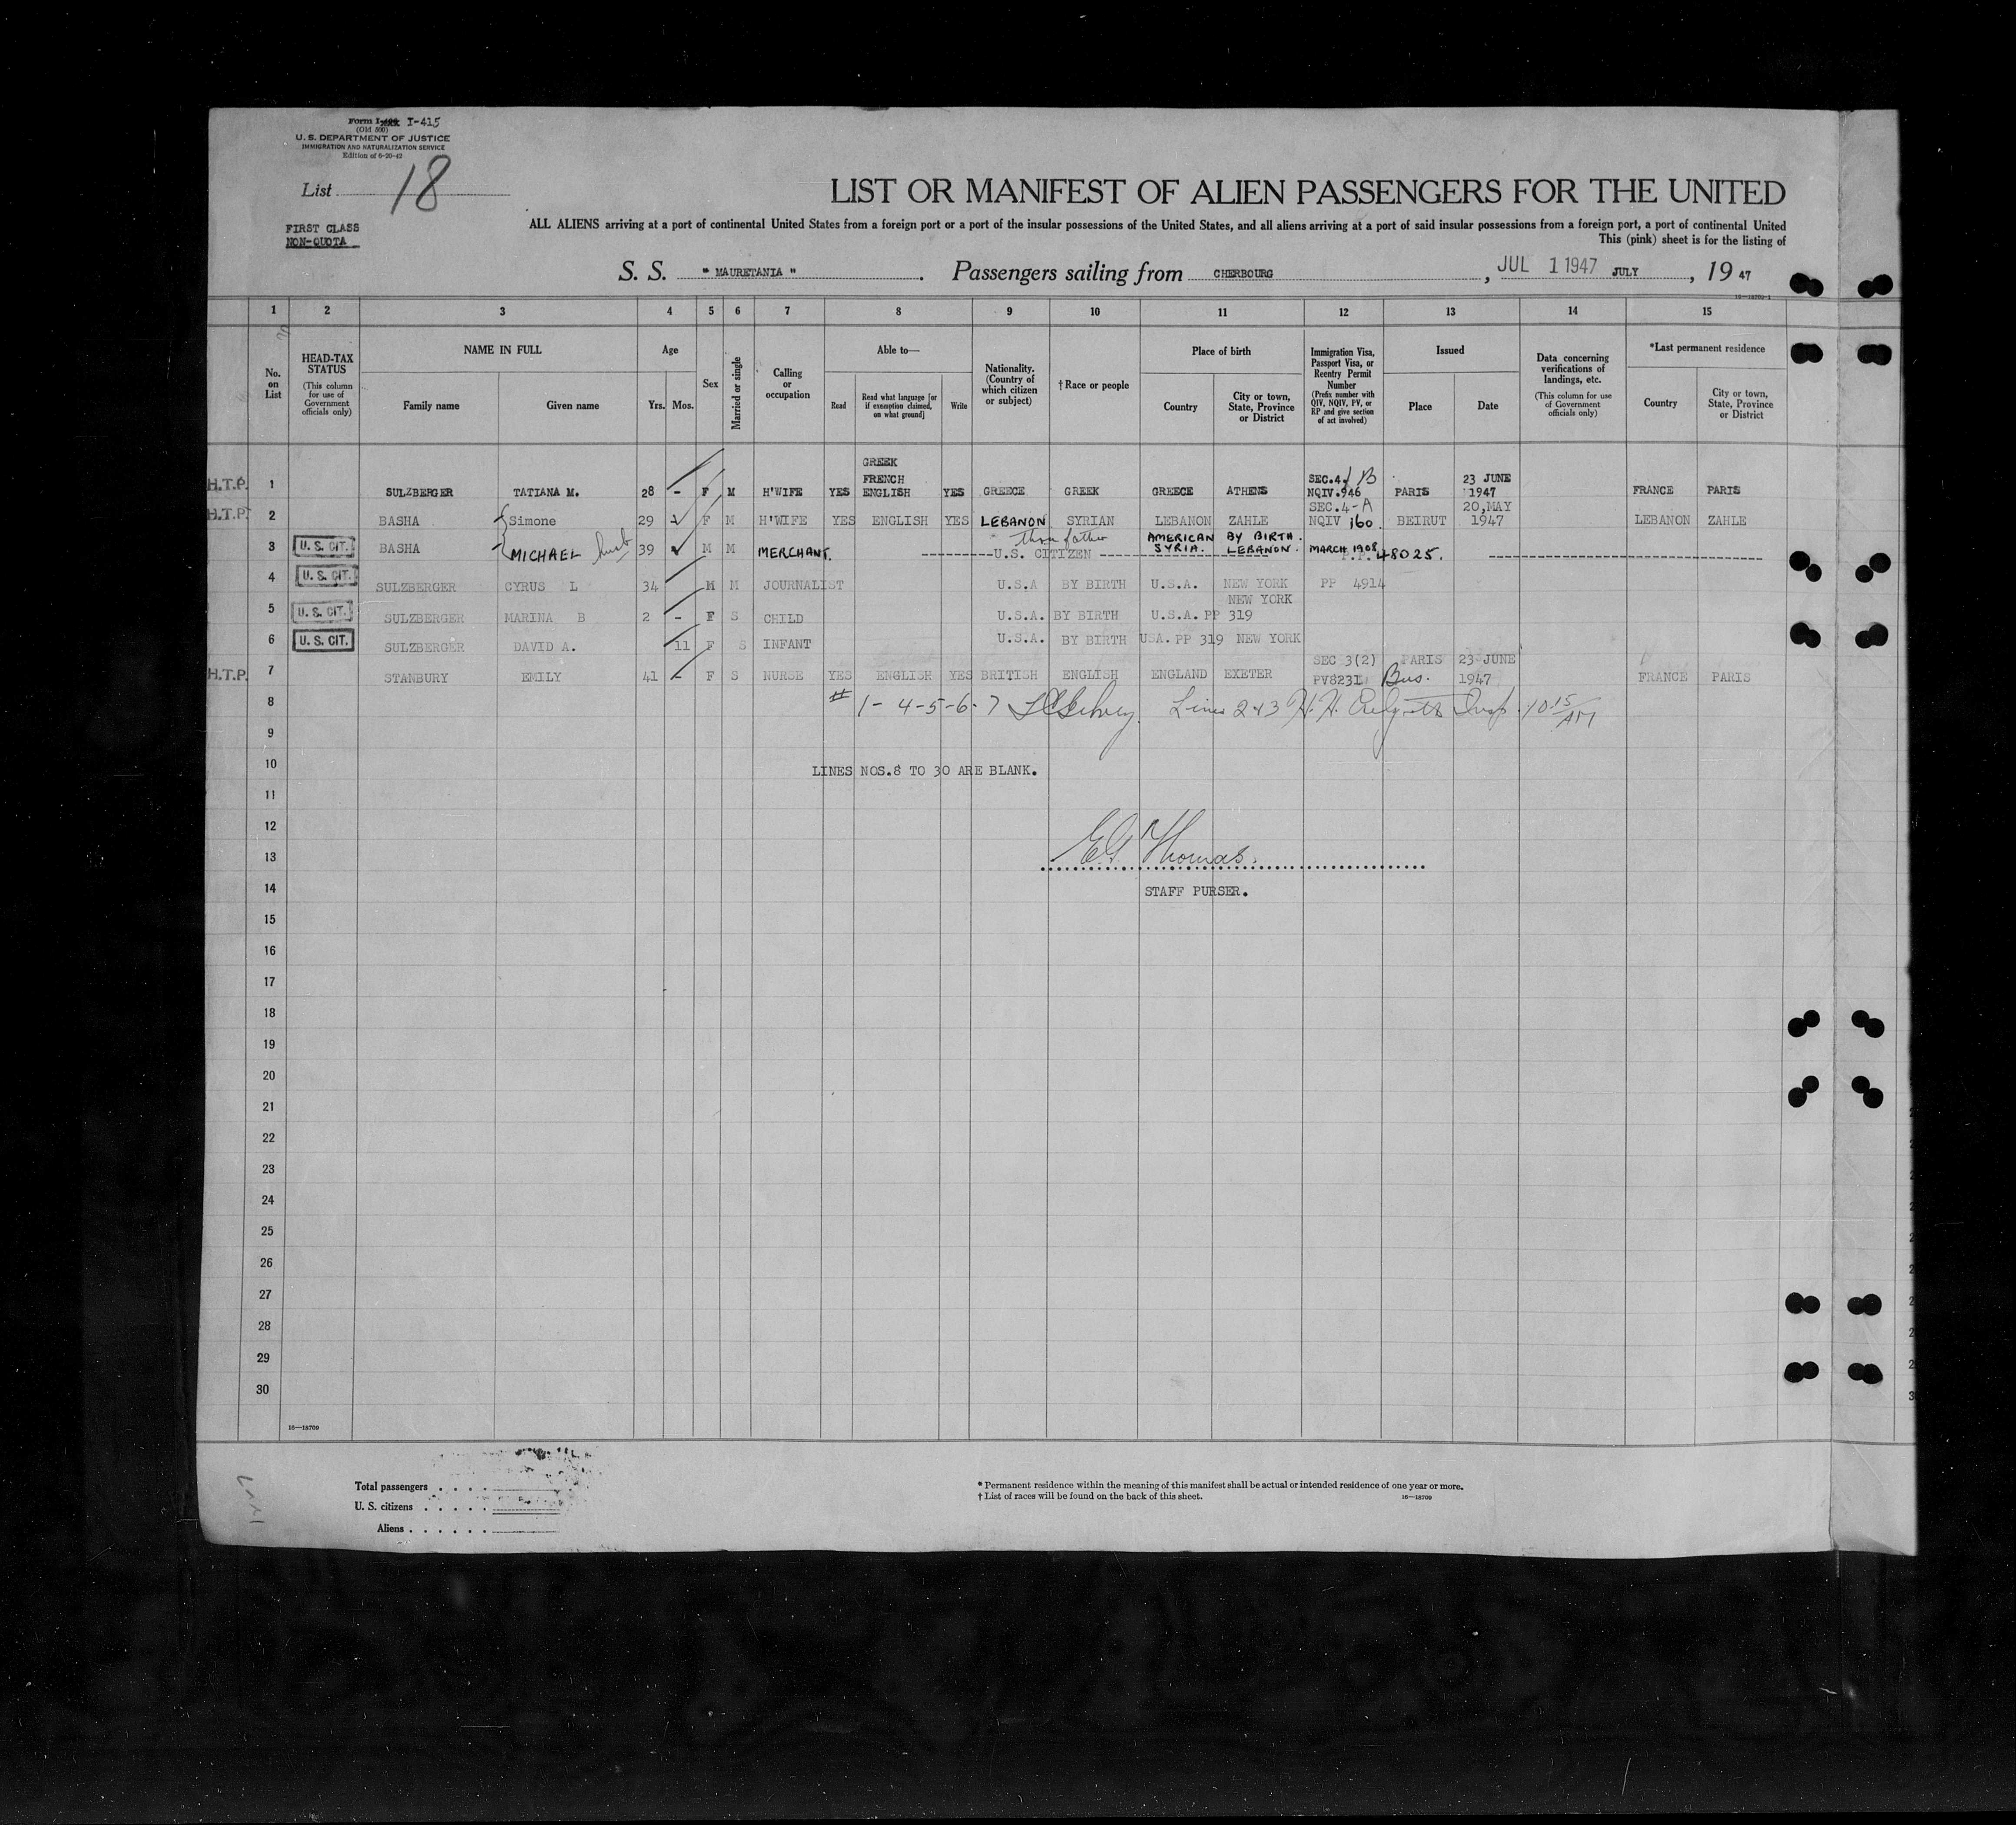 Form I-415
(Old 500)
U. S. DEPARTMENT OF JUSTICE
IMMIGRATION AND NATURALIZATION SERVICE
Edition of 6-20-42
List 18
LIST OR MANIFEST OF ALIEN PASSENGERS FOR THE UNITED
FIRST CLASS
NON-QUOTA
ALL ALIENS arriving at a port of continental United States from a foreign port or a port of the insular possessions of the United States, and all aliens arriving at a port of said insular possessions from a foreign port, a port of continental United
This (pink) sheet is for the listing of
S. S. " MAURETANIA ". Passengers sailing from CHERBOURG, JUL 1 1947 JULY, 19 47
1 2 3 4 5 6 7 8 9 10 11 12 13 14 15
No. on List
HEAD-TAX STATUS (This column for use of Government officials only)
NAME IN FULL
Family name Given name
Age
Yrs. Mos.
Sex
Married or single
Calling or occupation
Able to—
Read
Read what language [or if exemption claimed, on what ground]
Write
Nationality. (Country of which citizen or subject)
† Race or people
Place of birth
Country
City or town, State, Province or District
Immigration Visa, Passport Visa, or Reentry Permit Number (Prefix number with QIV, NQIV, PV, or RP and give section of act involved)
Issued
Place Date
Data concerning verifications of landings, etc. (This column for use of Government officials only)
*Last permanent residence
Country
City or town, State, Province or District
H.T.P. 1 SULZBERGER TATIANA M. 28 - F M H'WIFE YES GREEK FRENCH ENGLISH YES GREECE GREEK GREECE ATHENS SEC.4 B NQIV.946 PARIS 23 JUNE 1947 FRANCE PARIS
H.T.P. 2 BASHA Simone 29 F M H'WIFE YES ENGLISH YES LEBANON SYRIAN LEBANON ZAHLE SEC.4-A NQIV 160. BEIRUT 20,MAY 1947 LEBANON ZAHLE
3 U. S. CIT. BASHA MICHAEL husb 39 M M MERCHANT. U.S. CITIZEN thru father AMERICAN BY BIRTH. SYRIA. LEBANON. MARCH 1908 P.P. 48025.
4 U. S. CIT. SULZBERGER CYRUS L 34 M M JOURNALIST U.S.A BY BIRTH U.S.A. NEW YORK PP 4914
5 U. S. CIT. SULZBERGER MARINA B 2 - F S CHILD U.S.A. BY BIRTH U.S.A. PP 319 NEW YORK
6 U. S. CIT. SULZBERGER DAVID A. 11 F S INFANT U.S.A. BY BIRTH USA. PP 319 NEW YORK
H.T.P. 7 STANBURY EMILY 41 - F S NURSE YES ENGLISH YES BRITISH ENGLISH ENGLAND EXETER SEC 3(2) PV8231 PARIS Bus. 23 JUNE 1947 FRANCE PARIS
8 # 1-4-5-6-7 Lines 2+3 Insp. 10 15 AM
9
10 LINES NOS.8 TO 30 ARE BLANK.
11
12
13 EG Thomas.
14 STAFF PURSER.
15
16
17
18
19
20
21
22
23
24
25
26
27
28
29
30
16—18709
Total passengers
U. S. citizens
Aliens
* Permanent residence within the meaning of this manifest shall be actual or intended residence of one year or more.
† List of races will be found on the back of this sheet.
16—18709